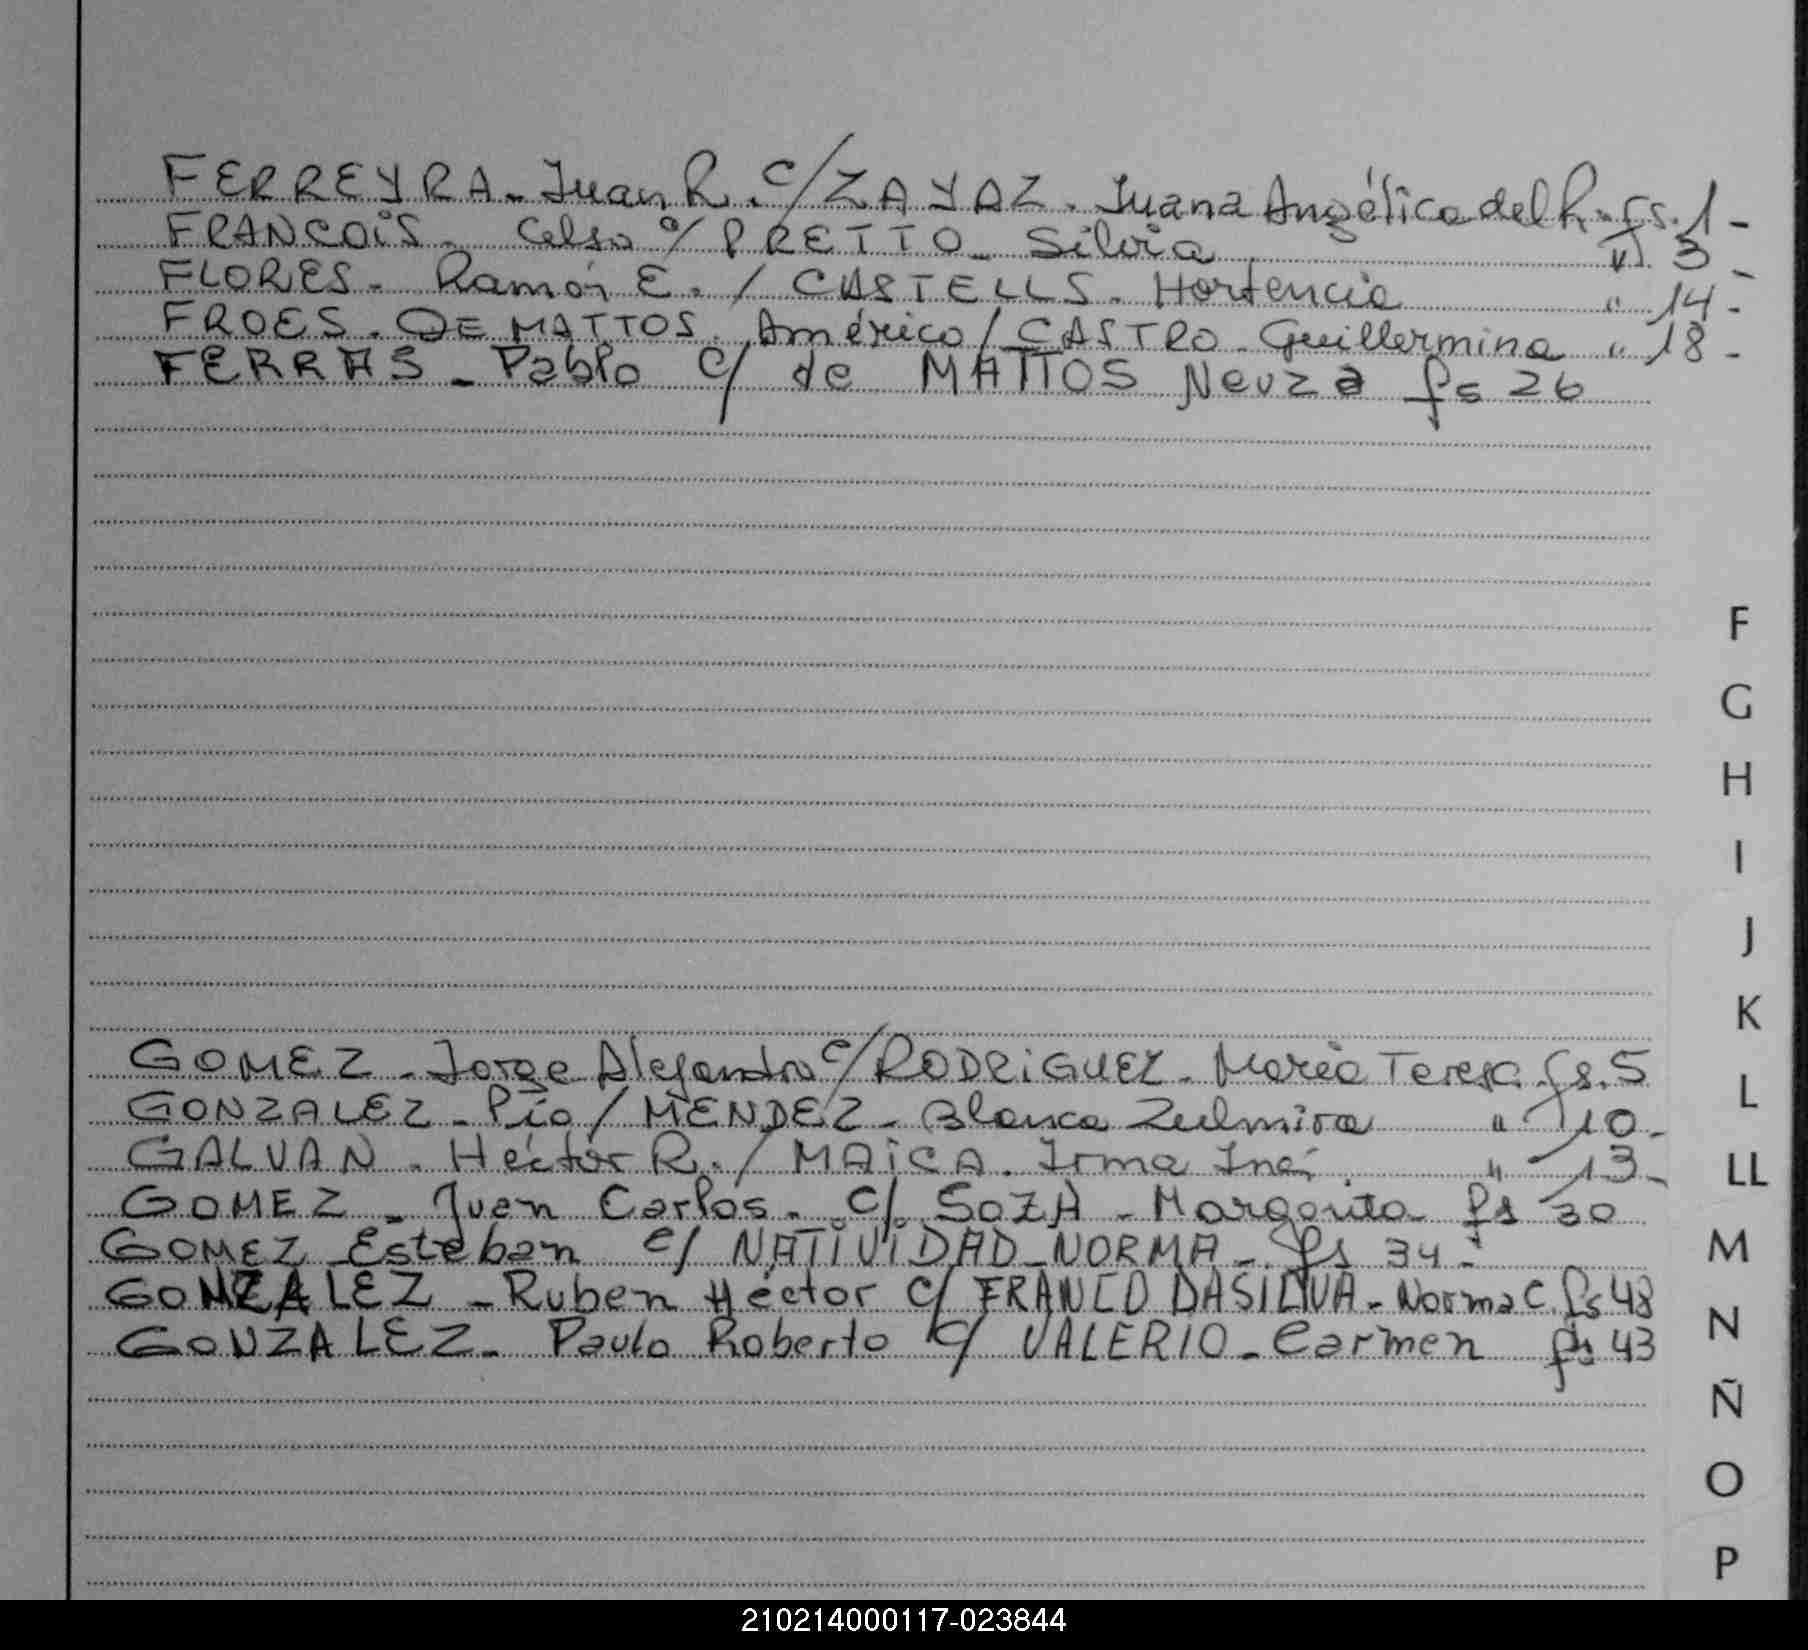 FERREYRA - Juan R. c/ ZAYAZ. Juana Angélica del R. fs. 1 -
FRANCOIS. Celso c/ PRETTO - Silvia " 3 -
FLORES. Ramón E. / CASTELLS. Hortencia " 14 -
FROES. DE MATTOS. Américo / CASTRO. Guillermina " 18 -
FERRAS - Pablo c/ de MATTOS Neuza fs 26
GOMEZ - Jorge Alejandro c/ RODRIGUEZ - María Teresa. fs. 5
GONZALEZ - Pío / MENDEZ - Blanca Zulmira " 10 -
GALVAN. Héctor R. / MAICA. Irma Iné " 13 -
GOMEZ - Juan Carlos. c/. SOZA - Margarita fs 30
GOMEZ Esteban c/ NATIVIDAD - NORMA - fs 34 -
GONZALEZ - Ruben Héctor c/ FRANCO DASILVA - Norma C. fs 48
GONZALEZ - Paulo Roberto c/ VALERIO - Carmen fs 43
F
G
H
I
J
K
L
LL
M
N
Ñ
O
P
210214000117-023844